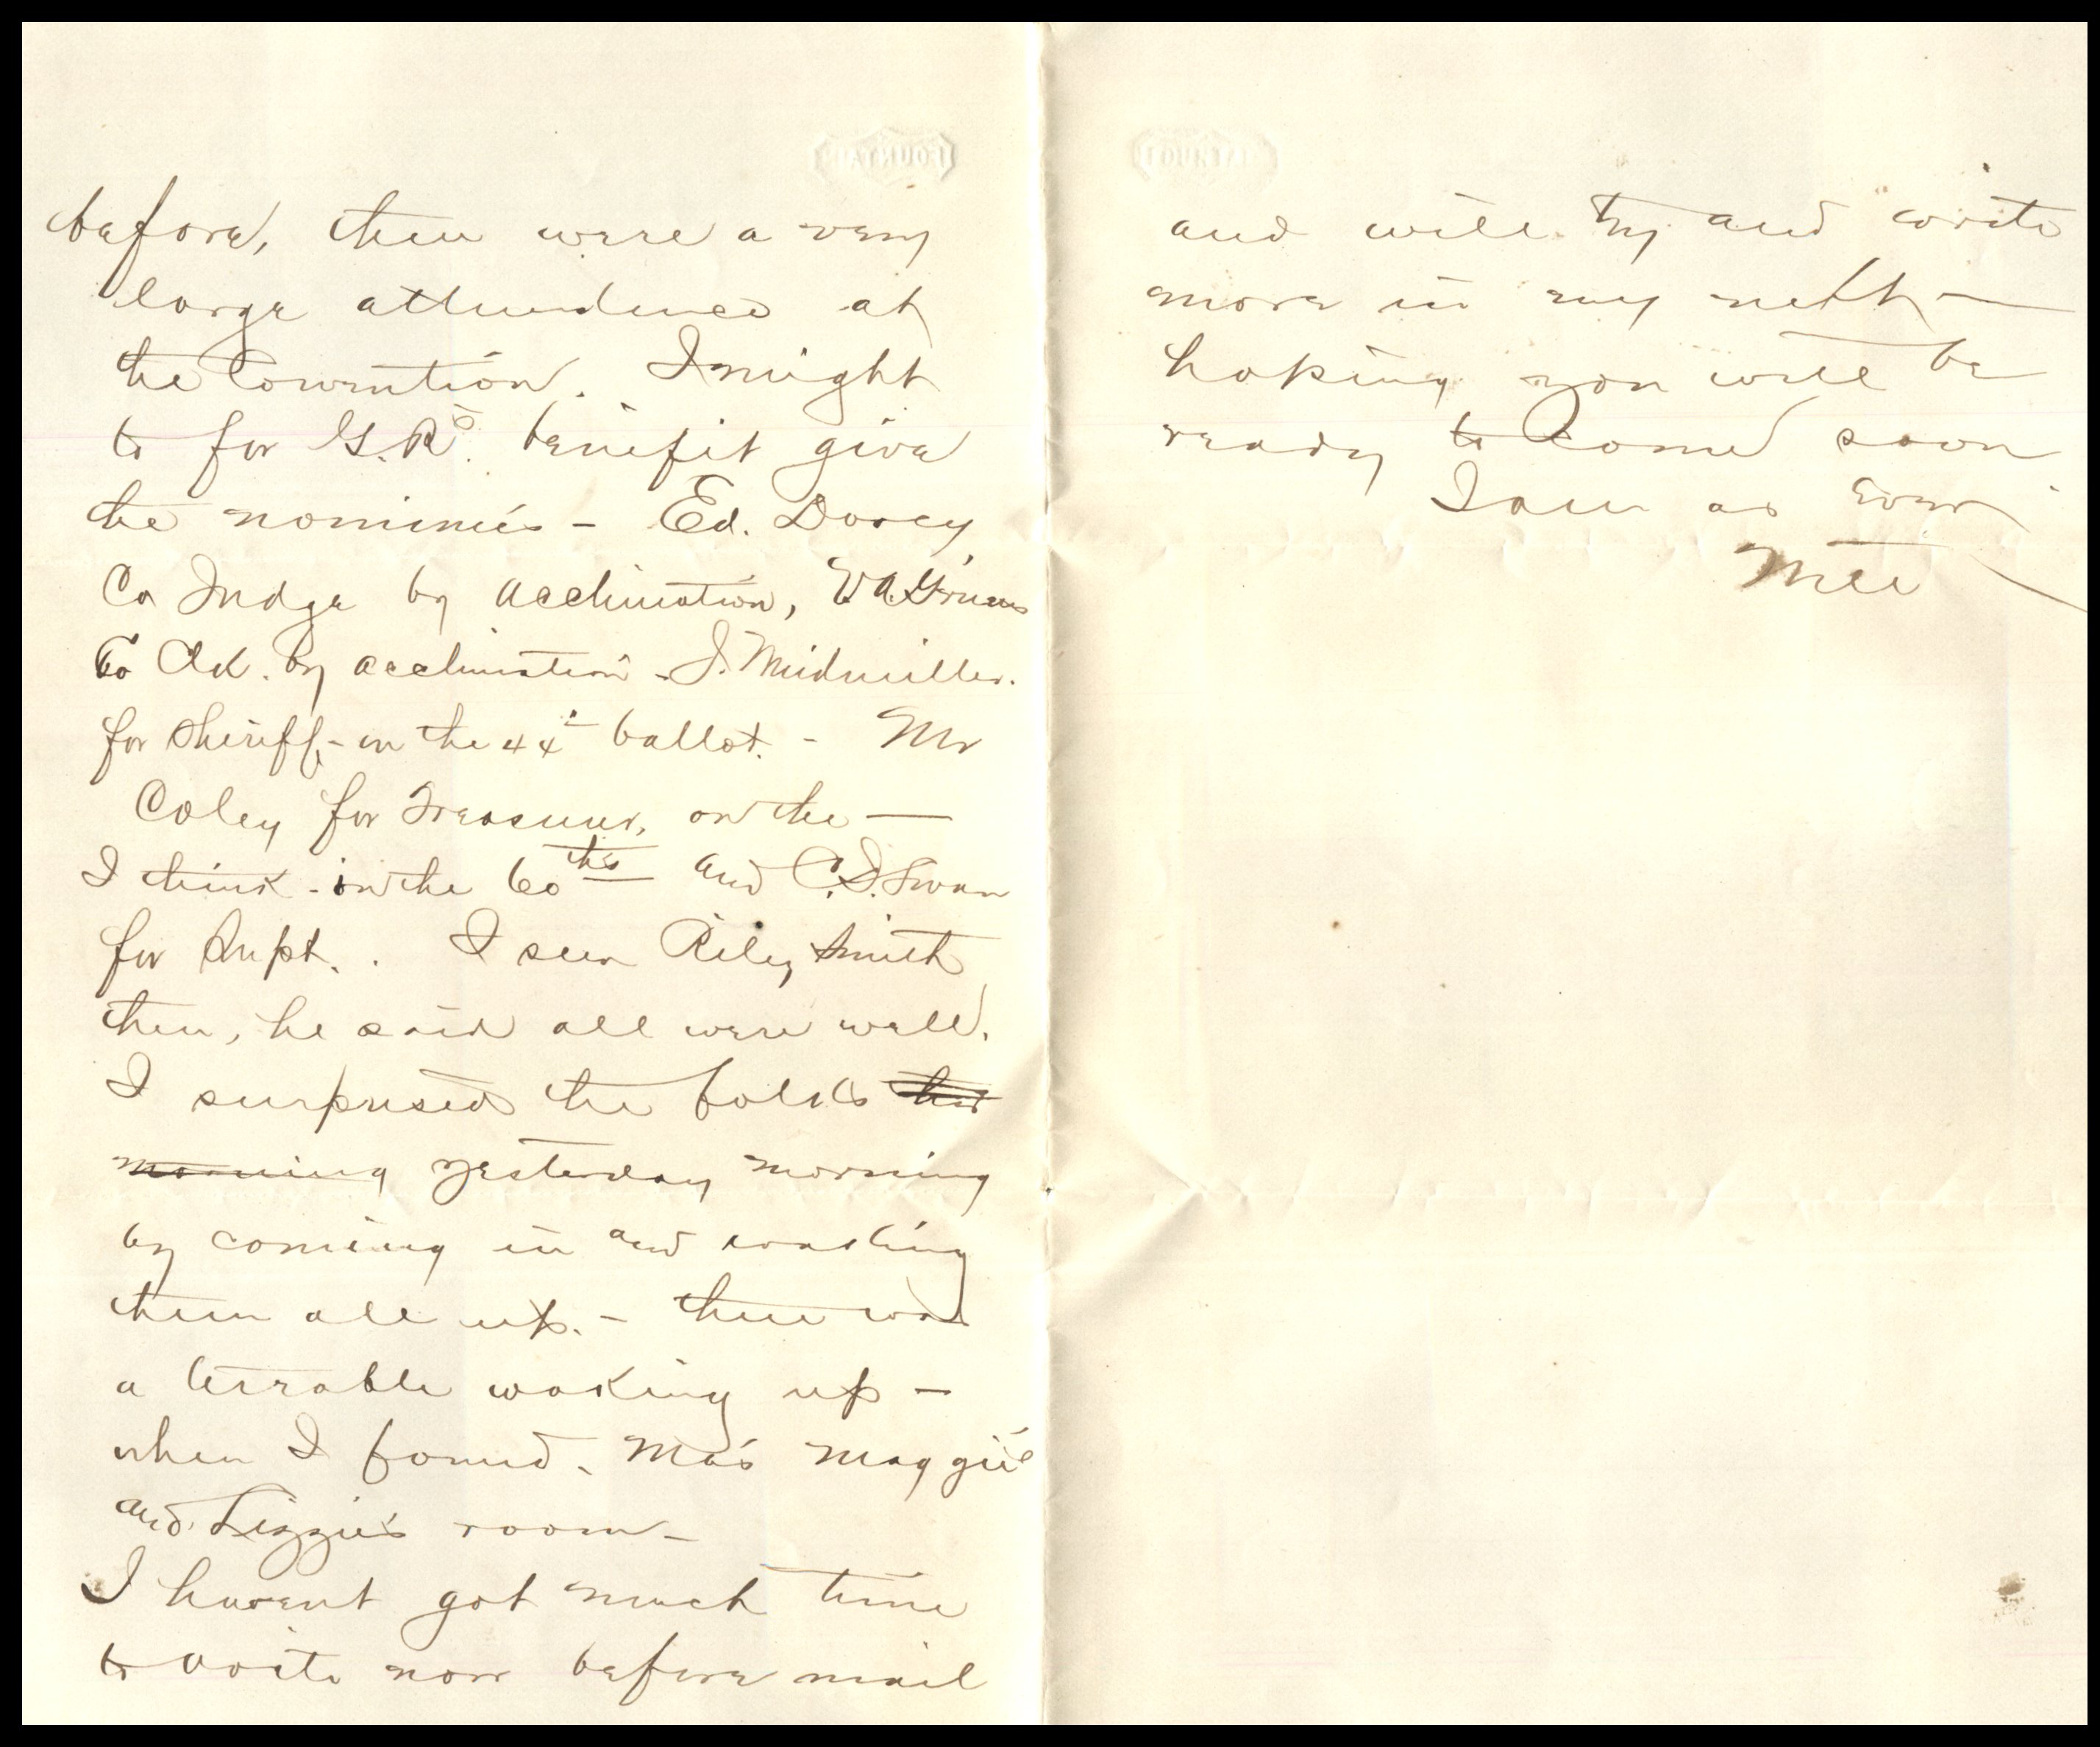 before, there were a very
large attendence at
the Convention. I might
to for G.R's. benifit give
the nominies - Ed. Dorcy
Co Judge by acclimation,
Co Clk. by acclimation - J. Midmiller.
for Sheriff - on the 44" ballot. - Mr
Coley for Treasurer, on the —
I think - on the 60ths and C.D. Swan
for Supt. . I seen Riley Smith
then, he said all were well.
I surprised the folks this
morning yesterday morning
by coming in and waking
them all up. - there was
a terrable waking up -
when I found. Ma's Maggie
and Lizzie's room -
I havent got much time
to write now before mail
FOUNTAIN
and will try and write
more in my next —
hoping you will be
ready to Come soon
I am as Ever